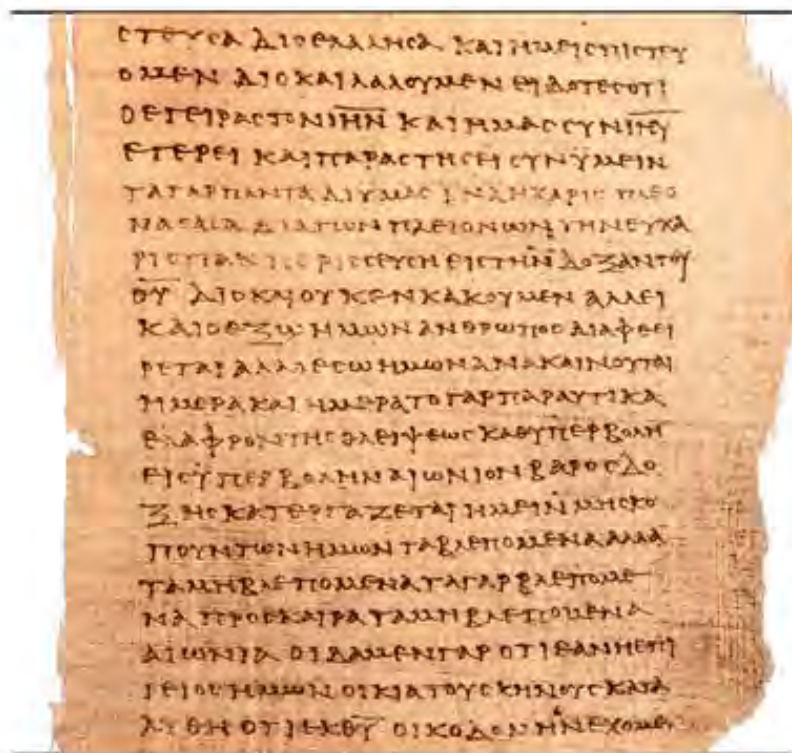 ϹΤΕΥϹΑ ΔΙΟ ΕΛΑΛΗϹΑ ΚΑΙ ΗΜΕΙϹ ΠΙϹΤΕΥ
ΟΜΕΝ ΔΙΟ ΚΑΙ ΛΑΛΟΥΜΕΝ ΕΙΔΟΤΕϹ ΟΤΙ
Ο ΕΓΕΙΡΑϹ ΤΟΝ Ι̅Η̅Ν̅ ΚΑΙ ΗΜΑϹ ϹΥΝ Ι̅Η̅Υ̅
ΕΓΕΡΕΙ ΚΑΙ ΠΑΡΑϹΤΗϹΕΙ ϹΥΝ ΫΜΕΙΝ
ΤΑ ΓΑΡ ΠΑΝΤΑ ΔΙ ΥΜΑϹ ΙΝΑ Η ΧΑΡΙϹ ΠΛΕΟ
ΝΑϹΑϹΑ ΔΙΑ ΤΩΝ ΠΛΕΙΟΝΩΝ ΤΗΝ ΕΥΧΑ
ΡΙϹΤΙΑΝ ΠΕΡΙϹϹΕΥϹΗ ΕΙϹ ΤΗΝ ΔΟΞΑΝ ΤΟΥ
Θ̅Υ̅ ΔΙΟ ΚΑΙ ΟΥΚ ΕΝΚΑΚΟΥΜΕΝ ΑΛΛ ΕΙ
ΚΑΙ Ο ΕΞΩ ΗΜΩΝ ΑΝΘΡΩΠΟϹ ΔΙΑΦΘΕΙ
ΡΕΤΑΙ ΑΛΛ Ο ΕϹΩ ΗΜΩΝ ΑΝΑΚΑΙΝΟΥΤΑΙ
ΗΜΕΡΑ ΚΑΙ ΗΜΕΡΑ ΤΟ ΓΑΡ ΠΑΡΑΥΤΙΚΑ
ΕΛΑΦΡΟΝ ΤΗϹ ΘΛΕΙΨΕΩϹ ΚΑΘ ΥΠΕΡΒΟΛΗ
ΕΙϹ ΫΠΕΡΒΟΛΗΝ ΑΙΩΝΙΟΝ ΒΑΡΟϹ ΔΟ
ΞΗϹ ΚΑΤΕΡΓΑΖΕΤΑΙ ΗΜΕΙΝ ΜΗ ϹΚΟ
ΠΟΥΝΤΩΝ ΗΜΩΝ ΤΑ ΒΛΕΠΟΜΕΝΑ ΑΛΛΑ
ΤΑ ΜΗ ΒΛΕΠΟΜΕΝΑ ΤΑ ΓΑΡ ΒΛΕΠΟΜΕ
ΝΑ ΠΡΟϹΚΑΙΡΑ ΤΑ ΜΗ ΒΛΕΠΟΜΕΝΑ
ΑΙΩΝΙΑ ΟΙΔΑΜΕΝ ΓΑΡ ΟΤΙ ΕΑΝ Η ΕΠΙ
ΓΕΙΟϹ ΗΜΩΝ ΟΙΚΙΑ ΤΟΥ ϹΚΗΝΟΥϹ ΚΑΤΑ
ΛΥΘΗ ΟΤΙ ΕΚ Θ̅Υ̅ ΟΙΚΟΔΟΜΗΝ ΕΧΟΜΕΝ